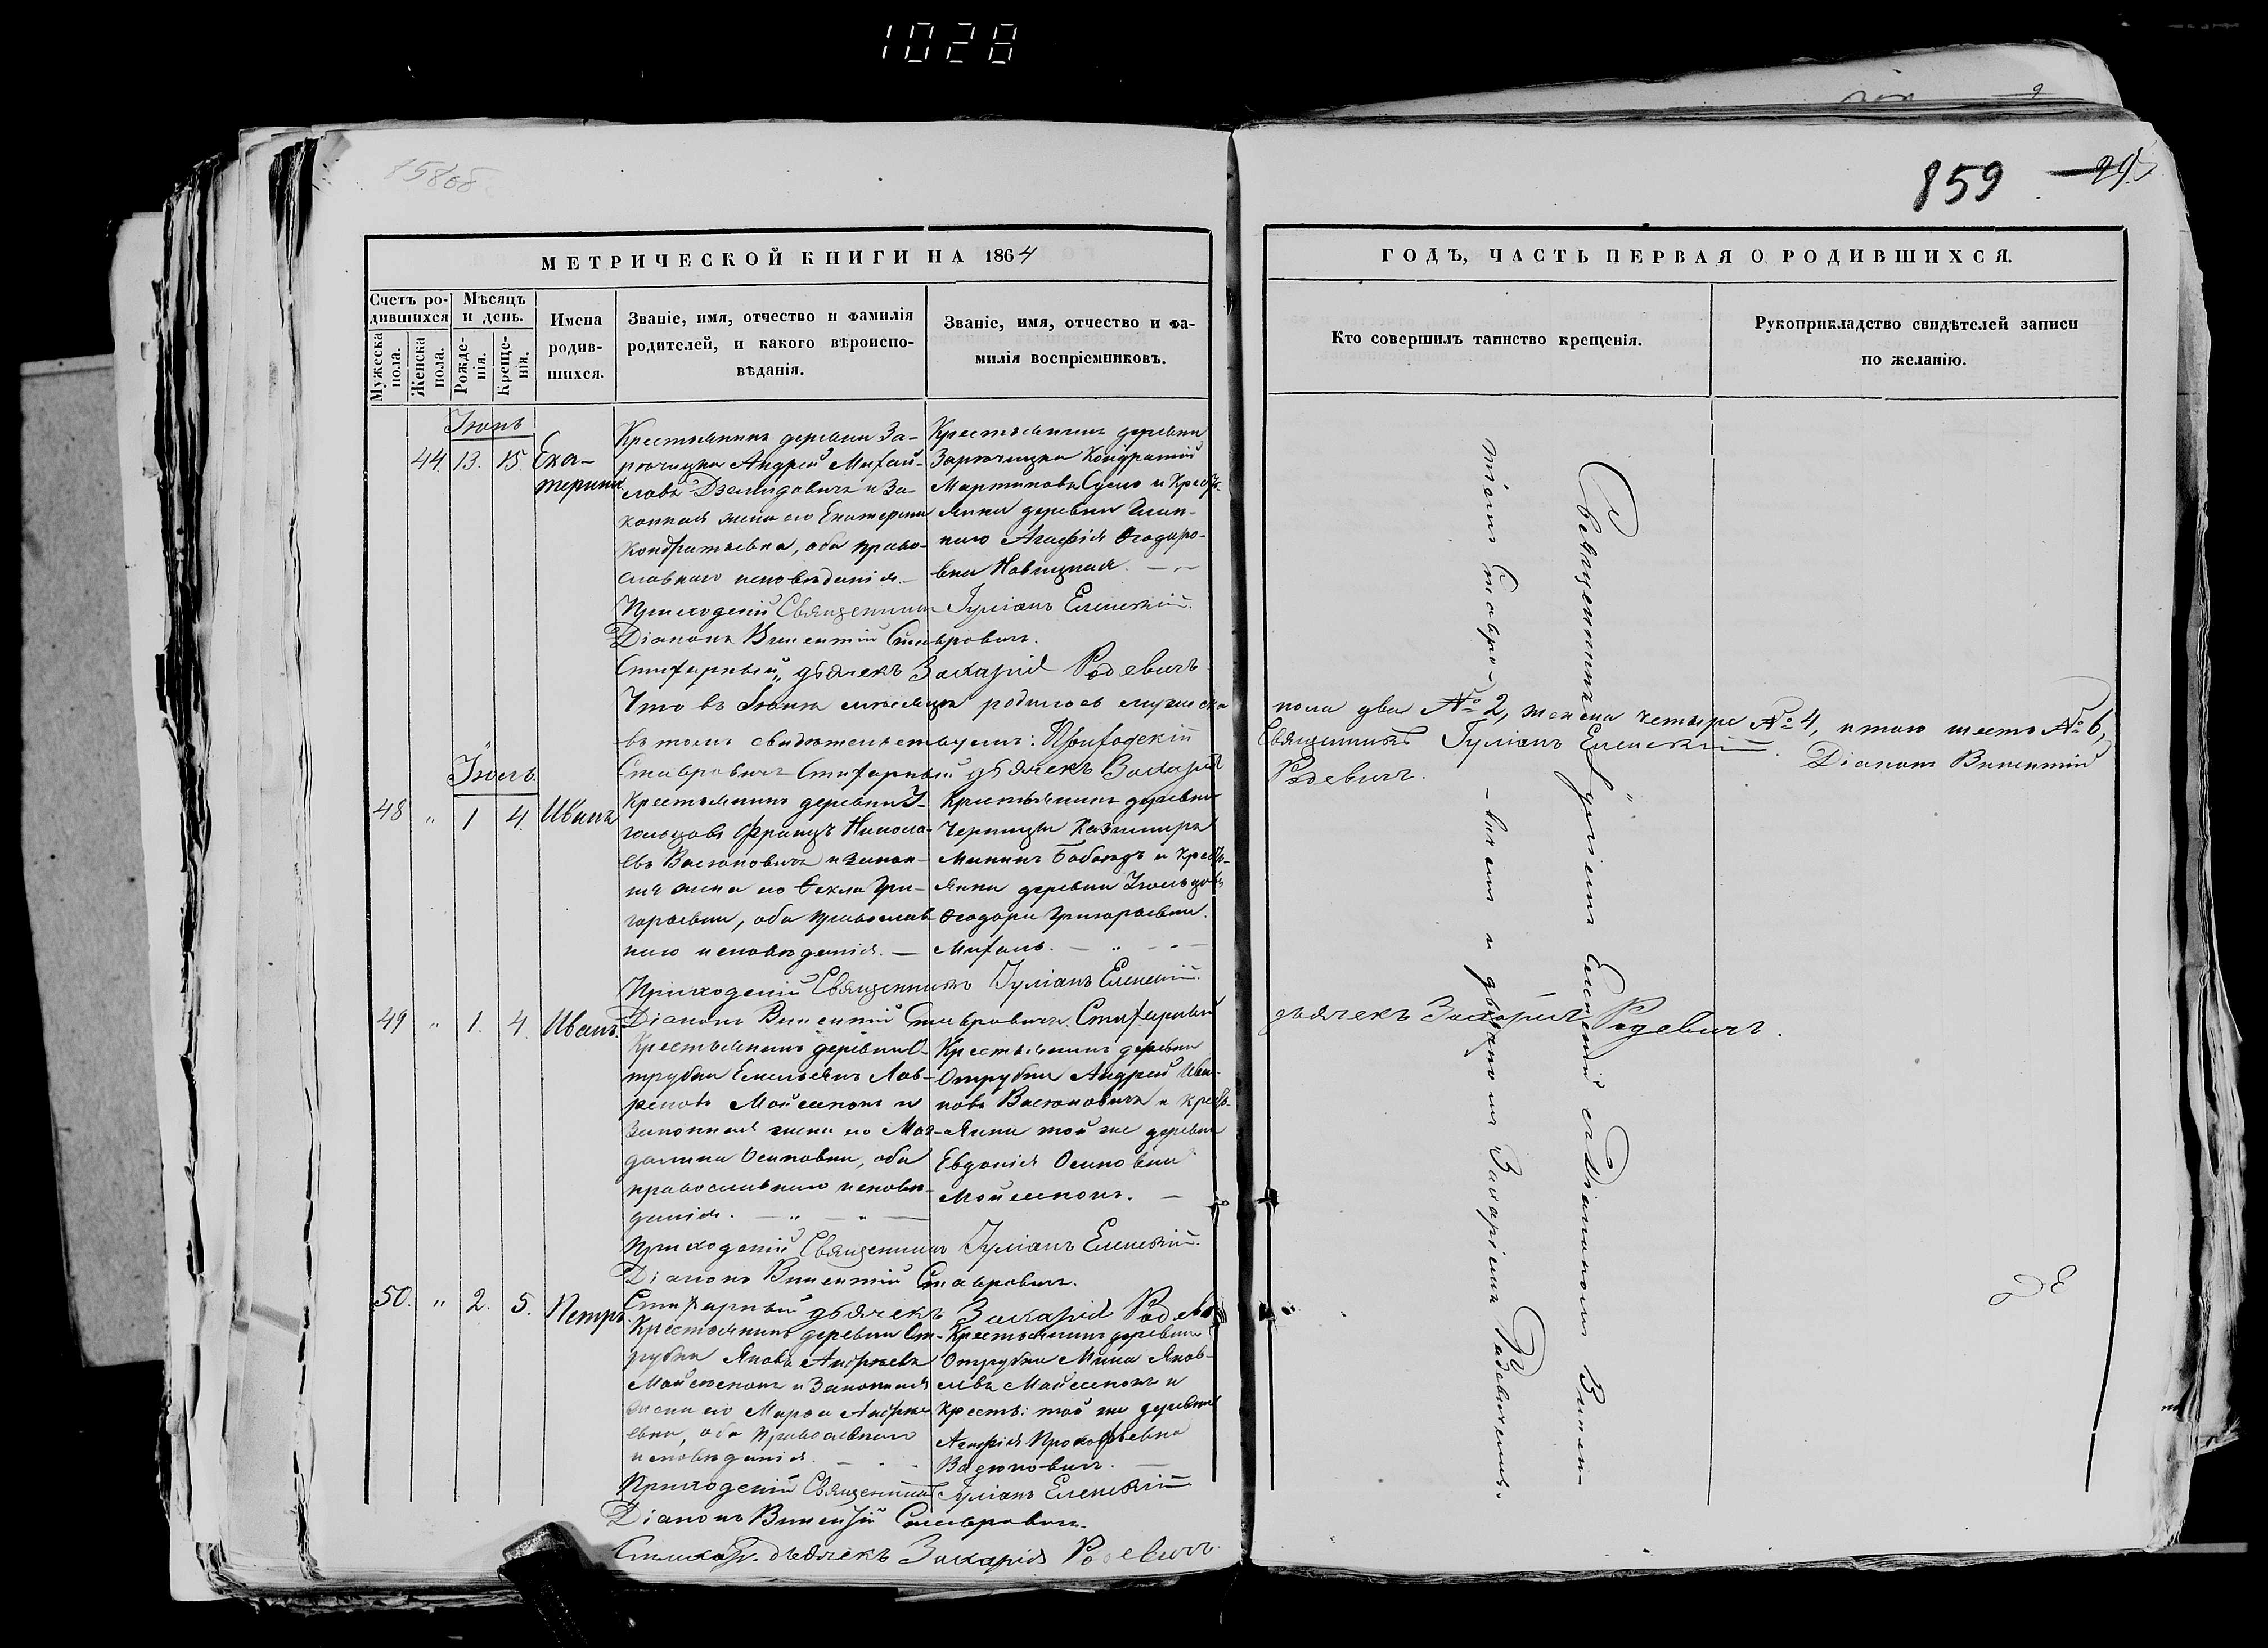 1028
858об
859
МЕТРИЧЕСКОЙ КНИГИ НА 1864
ГОДЪ, ЧАСТЬ ПЕРВАЯ О РОДИВШИХСЯ.
Счетъ ро-
дившихся
Мужеска пола.
Женска пола.
Мѣсяцъ
и день.
Рожде-
нія.
Креще-
нія.
Имена
родив-
шихся.
Званіе, имя, отчество и фамилія
родителей, и какого вѣроиспо-
вѣданія.
Званіе, имя, отчество и фа-
милія воспріемниковъ.
Кто совершилъ таинство крещенія.
Рукоприкладство свидѣтелей записи
по желанію.
Іюнь
44 13. 15. Ека-
терина
Крестьянинъ деревни За-
рѣчицка Андрей Михай-
ловъ Дземидовичъ и За-
конная жена его Екатерина
Кондратьевна, оба право-
славнаго исповѣданія. —
Крестьянинъ деревни
Зарѣчицка Кондратій
Мартиновъ Сусло и Кресть-
янка деревни
Агафія Ѳеодоро-
вна Новицкая. —
Приходскій Священникъ Іуліанъ Еленскій.
Діаконъ Викентій Ставровичъ.
Стихарный дьячекъ Захарій Родевичъ
Что въ Іюнѣ мѣсяцѣ родилось мужеска
пола два № 2, женска четыре № 4, итого шесть № 6,
въ томъ свидѣтельствуемъ: Приходскій
Священникъ Іуліанъ Еленскій. Діаконъ Викентій
Ставровичъ Стихарный дьячекъ Захарій
Родевичъ.
Іюль.
48 " 1 4. Иванъ
Крестьянинъ деревни У-
гольцовъ Францъ Никола-
евъ Васюковичъ и закон-
ная жена его Ѳекла Гри-
горьевна, оба православ-
наго исповѣданія. —
Крестьянинъ деревни
Казимиръ
Кресть-
янка деревни
Ѳеодора Григорьевна
Михаль. —
Приходскій Священникъ Іуліанъ Еленскій.
Діаконъ Викентій Ставровичъ. Стихарный
дьячекъ Захарій Родевичъ.
49 " 1. 4. Иванъ.
Крестьянинъ деревни О-
трубки Емельянъ Лав-
реновъ Мойсенокъ и
Законная жена его Маг-
далина Осиповна, оба
православнаго исповѣ-
данія. —
Крестьянинъ деревни
Отрубки Андрей Ива-
новъ Васюковичъ и кресть-
янка той же деревни
Евдокія Осиповна
Мойсенокъ. —
Приходскій Священникъ Іуліанъ Еленскій.
Діаконъ Викентій Ставровичъ.
Стихарный дьячекъ Захарій Родевичъ
50. " 2. 5. Петръ
Крестьянинъ деревни От-
рубки Яковъ Андреевъ
Мойсенокъ и Законная
жена его Марѳа Андре
евна, оба православнаго
исповѣданія. —
Крестьянинъ деревни
Отрубки Мина Яков-
левъ Мойсенокъ и
Кресть: той же деревни
Агафія Прокофьевна
Васюковичъ. —
Приходскій Священникъ Іуліанъ Еленскій
Діаконъ Викентій Ставровичъ.
Стихар. дьячекъ Захарій Родевичъ.
Священникъ Іуліанъ Еленскій съ Діакономъ Викен-
тіемъ Ставро-
-вичемъ и дьячкомъ Захаріемъ Родевичемъ.